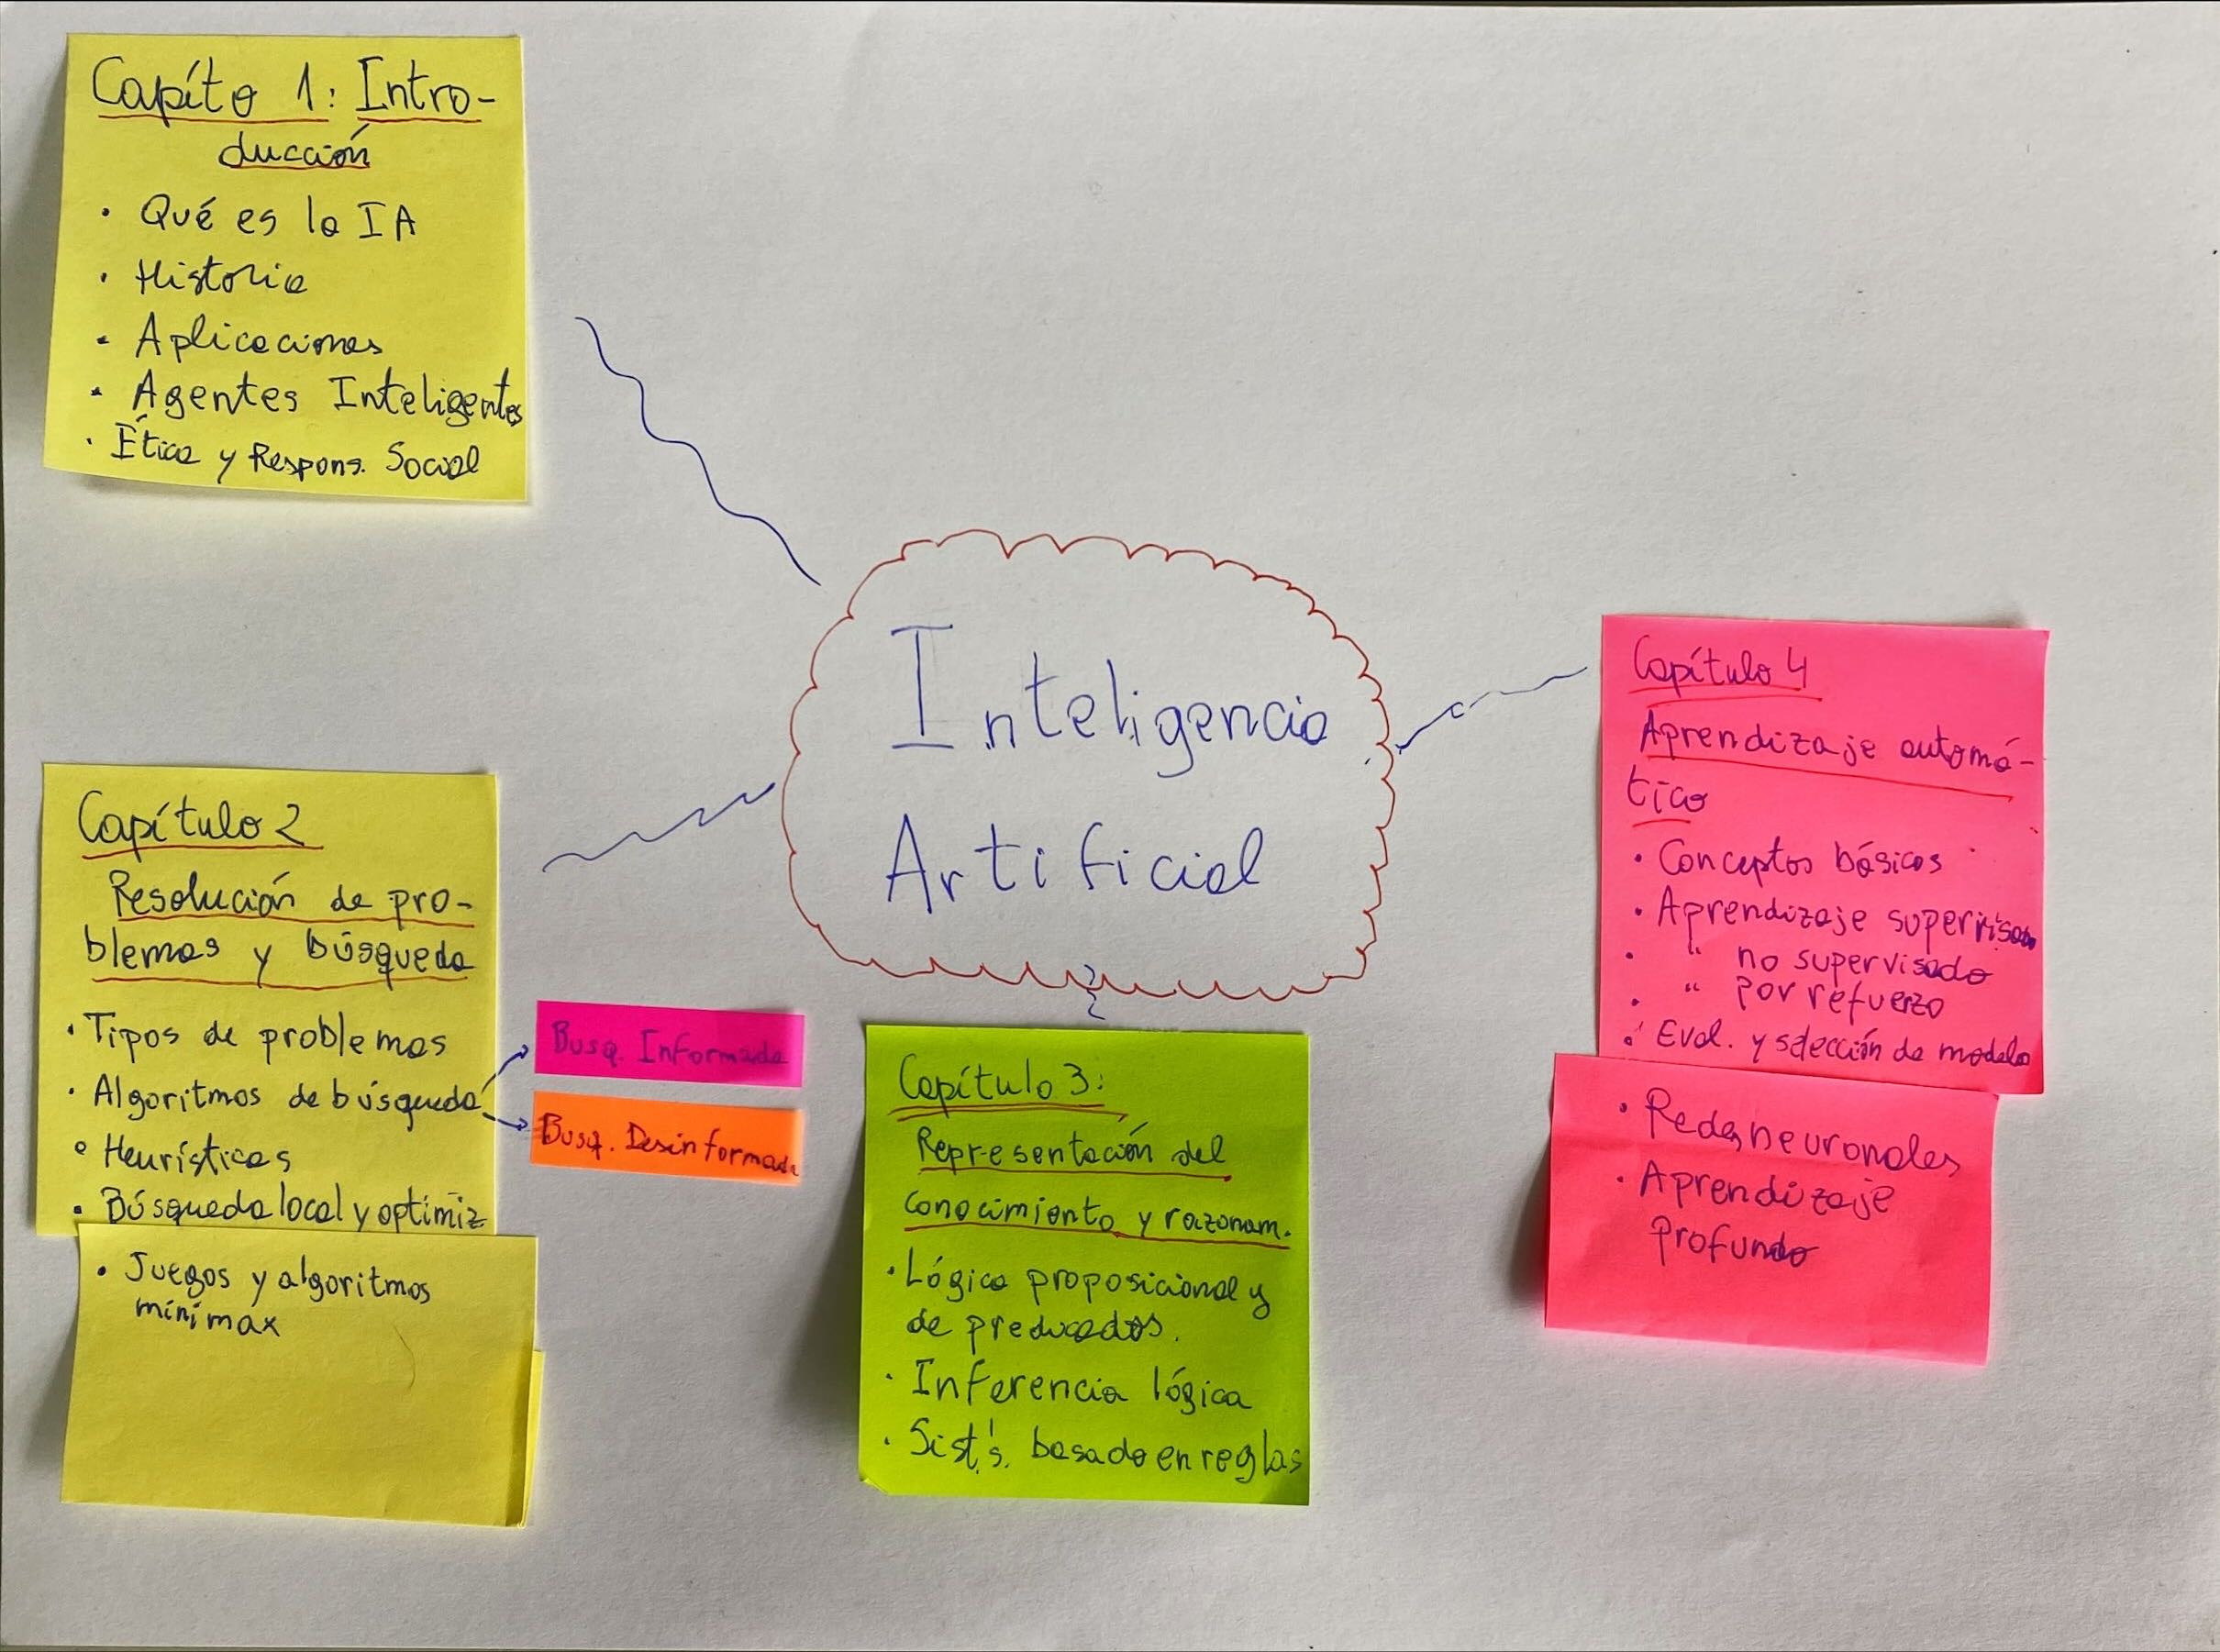 Capíto 1: Intro-
ducción
· Qué es la IA
· Historia
· Aplicaciones
· Agentes Inteligentes
· Ética y Respons. Social
Inteligencia
Artificial
Capítulo 2
Resolución de pro-
blemas y búsqueda
· Tipos de problemas
· Algoritmos de búsqueda
· Heurísticas
· Búsqueda local y optimiz
· Juegos y algoritmos
minimax
Busq. Informada
Busq. Desinformada
Capítulo 3:
Representación del
conocimiento y razonam.
· Lógica proposicional y
de predicados.
· Inferencia lógica
· Sist's. basado en reglas
Capítulo 4
Aprendizaje automá-
tico
· Conceptos básicos
· Aprendizaje supervisado
· " no supervisado
· " por refuerzo
· Eval. y selección de modelo
· Redes neuronales
· Aprendizaje
profundo